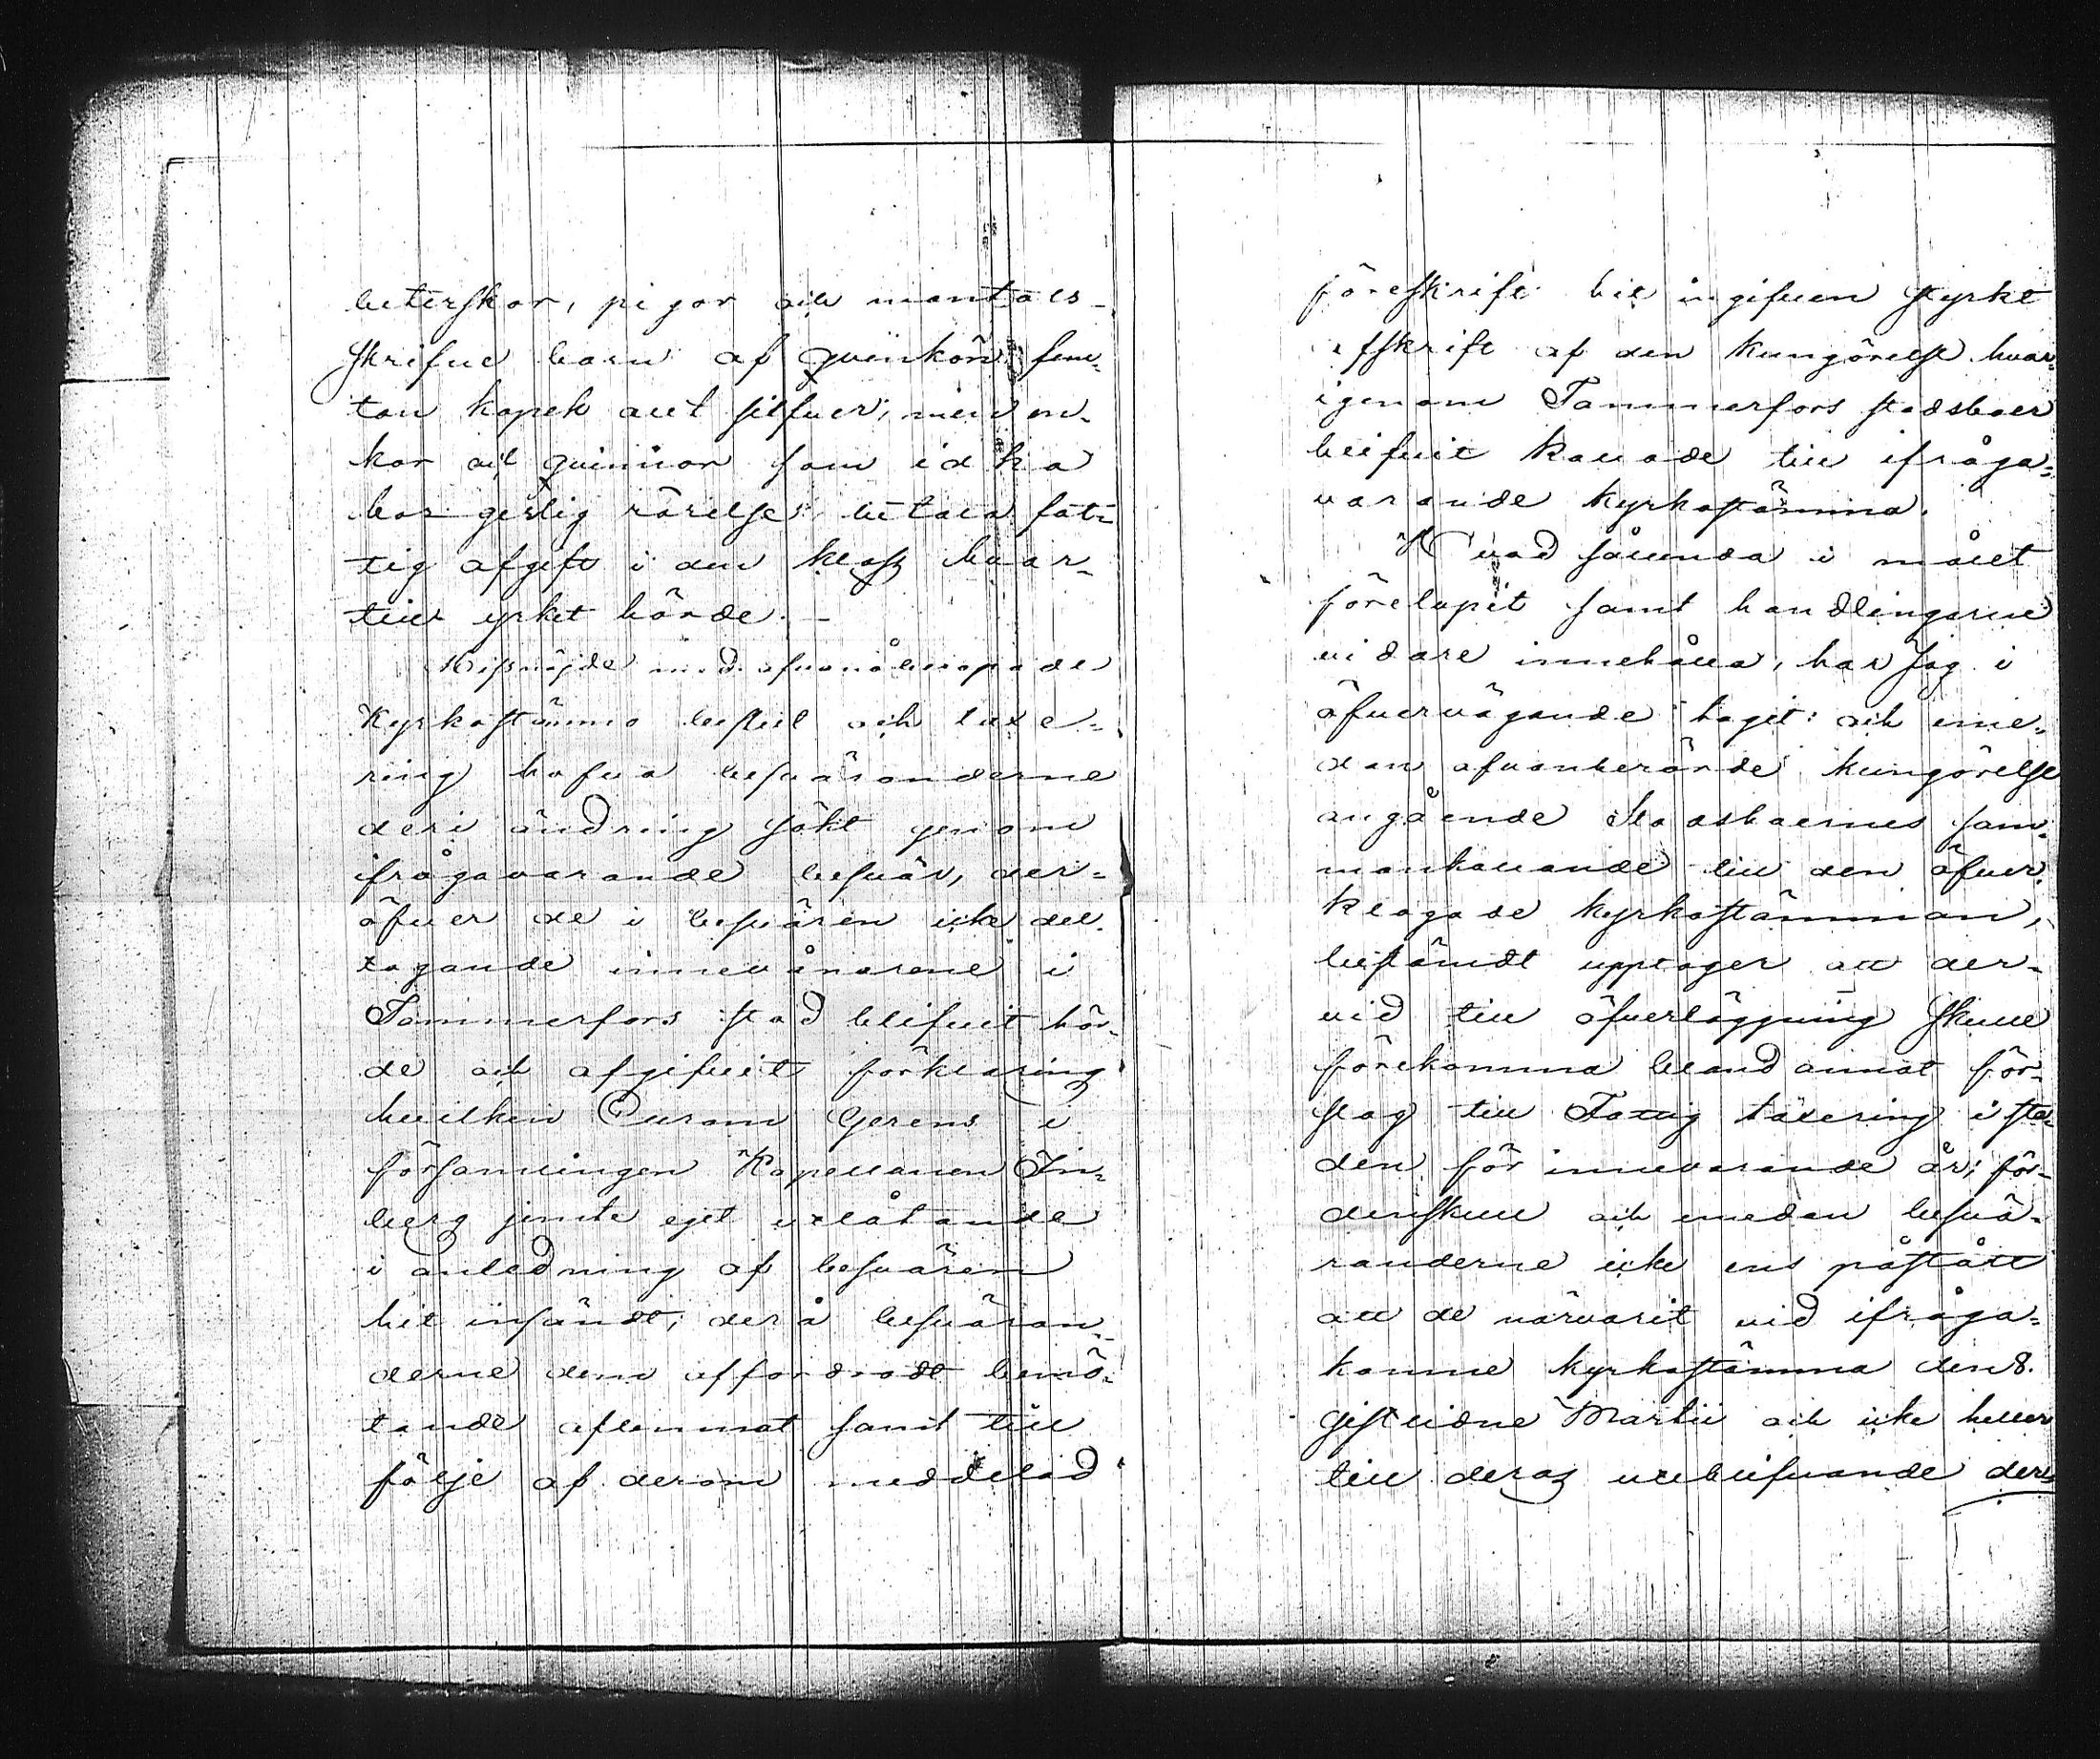 beterskor, pigor och mantals-
skrifne barn af quinkön fem-
ton kopek allt silfver; men en-
kor och quinnor som idka
borgerlig rörelse, betala fat-
tig afgift i den klass hvar-
till yrket hörde.-
Missnöjde med ofvanåberopade
Kyrkostämmo beslut och taxe-
ring hafva besväranderne
deri ändring sökt genom
ifrågavarande besvär, der-
öfver de i besvären icke del-
tagande innevånarene i
Tammerfors stad blifvit hör-
de och afgifvit förklaring
hvilken Curam Gerens i
församlingen Kapellanen In-
berg jemte eget utlåtande
i anledning af besvären
hit insändt; derå besväran-
derne dem affordradt bemö-
tande aflemnat samt till
följe af derom meddelad
föreskrift hit ingifven styrkt
afskrift af den Kungörelse hvar-
igenom Tammerfors stadsboer
blifvit kallade till ifråga-
varande kyrkostämma.
Hvad sålunda i målet
förelupit samt handlingarne
vidare innehålla, har Jag i
öfvervägande tagit; och eme-
dan ofvanberörde kungörelse
angående Stadsboernes sam-
mankallande till den öfver-
klagade kyrkostämman,
bestämdt upptager att der-
vid till öfverläggning skulle
förekomma bland annat för-
slag till Fattig taxering i sta-
den för innevarande år; för-
denskull och emedan besvä-
randerne icke ens påstått
att de närvarit vid ifråga-
komne kyrkostämma den 8.
sistlidne Martii och icke heller
till deras uteblifvande der-